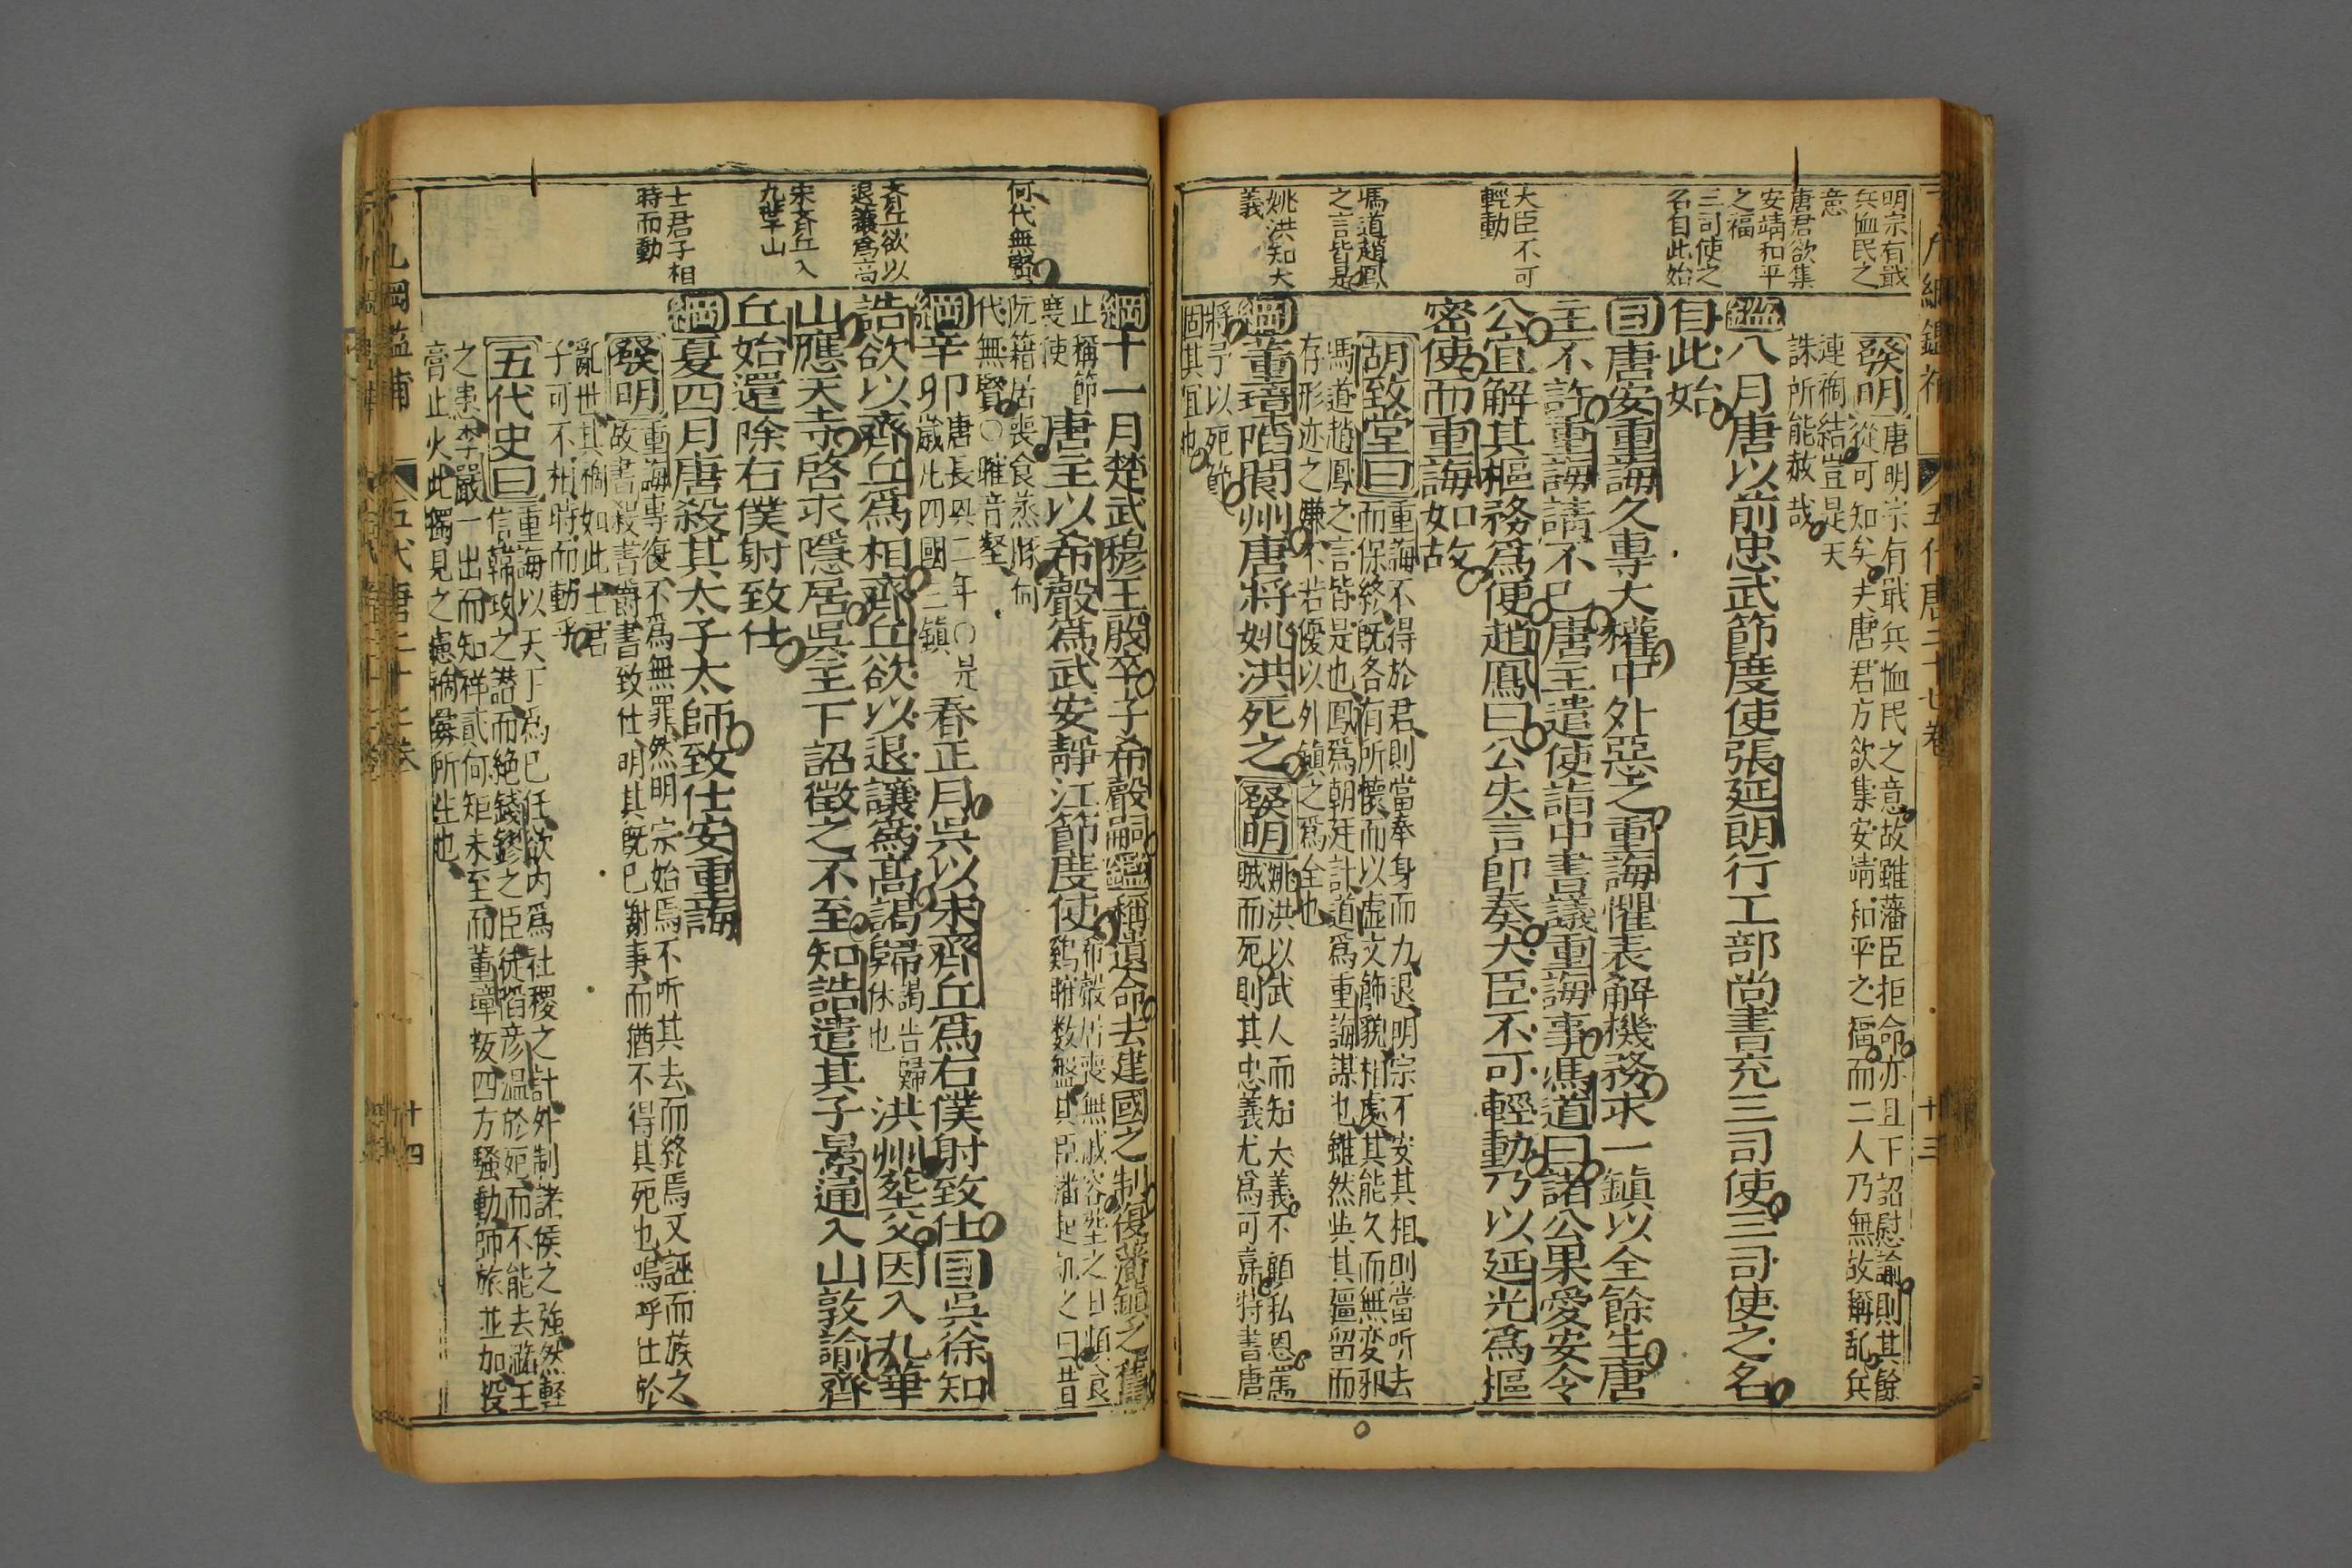 明宗有戢
兵恤民之
意
唐君欲集
安靖和平
之福
三司使之
名自此始
大臣不可
輕動
馮道趙鳳
之言皆是
姚洪知大
義
五代唐二十七卷
十三
發明唐明宗有戢兵恤民之意故雖藩臣拒命亦且下詔慰諭則其餘
從可知矣夫唐君方欲集安靖和平之福而二人乃無故稱乱兵
連禍結豈是天
誅所能赦哉
鑑八月唐以前忠武節度使張延朗行工部尚書充三司使三司使之名
自此始
目唐安重誨久專大權中外惡之重誨懼表解機務求一鎮以全餘生唐
主不許重誨請不已唐主遣使詣中書議重誨事馮道曰諸公果愛安令
公宜解其樞務為便趙鳳曰公失言卽奏大臣不可輕動乃以延光爲樞
密使而重誨如故
胡致堂曰重誨不得於君則當奉身而力退明宗不安其相則當听去
而保終既各有所懷而以虛文飾貌相處其能久而無変邪
馮道趙鳳之言皆是也鳳爲朝廷計道爲重誨謀也雖然與其彊留而
存形迹之嫌不若優以外鎮之爲全也
綱董璋陷閬州唐將姚洪死之發明姚洪以武人而知大義不顧私恩罵
賊而死則其忠義尤爲可嘉特書唐
將予以死節
固其宜也
何代無賢
齊丘欲以
退讓爲高
宋齊丘入
九華山
士君子相
時而動
綱十一月楚武穆王殷卒子希聲嗣鑑稱遺命去建國之制復藩鎮之舊
止稱節
襄使唐主以希聲爲武安靜江節度使希聲居喪無戚容塟之日頓食
鷄臛数盤其臣潘起譏之曰昔
阮籍居喪食蒸豚何
代無賢○臛音壑
綱辛卯唐長興二年○是
歲凡四國三鎮春正月吳以宋齊丘爲右僕射致仕目吳徐知
誥欲以齊丘爲相齊丘欲以退讓爲高謁歸謁告歸
休也洪州塟父因入九華
山應天寺啓求隱居吳主下詔徵之不至知誥遣其子景通入山敦諭齊
丘始還除右僕射致仕
綱夏四月唐殺其太子太師致仕安重誨
發明重誨專復不為無罪然明宗始焉不听其去而終焉又誣而族之
故書殺書爵書致仕明其既已謝事而猶不得其死也嗚呼仕於
亂世其禍如此士君
子可不相時而動乎
五代史曰重誨以天下爲已任欲内爲社稷之計外制諸侯之強然輕
信韓玫之譖而絶錢鏐之臣徒陷彦温於死而不能去潞王
之患李嚴一出而知祥貳仁矩未至而董璋叛四方騷動師旅並加投
膏止火此獨見之慮禍釁所生也
九綱鑑補
五代唐二十七卷
十四